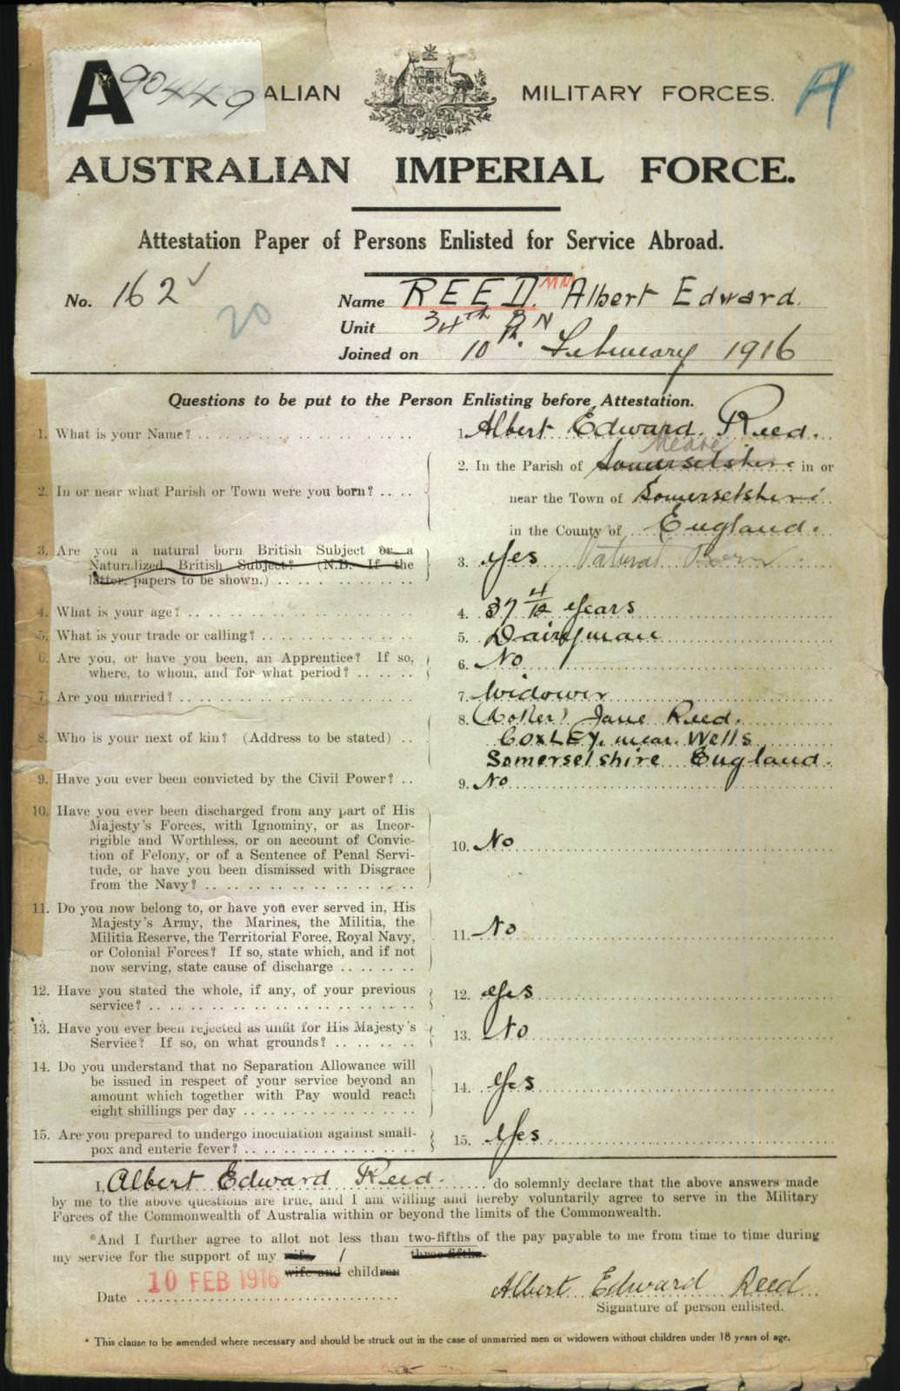 A 90449 ALIAN MILITARY FORCES. A
AUSTRALIAN IMPERIAL FORCE.
Attestation Paper of Persons Enlisted for Service Abroad.
No. 162 Name REED. MM Albert Edward.
20 Unit 34th BN
Joined on 10th February 1916
Questions to be put to the Person Enlisting before Attestation.
1. What is your Name? 1. Albert Edward Reed.
Meare
2. In the Parish of Somersetshire in or
2. In or near what Parish or Town were you born? near the Town of Somersetshire
in the County of England.
3. Are you a natural born British Subject or a
Naturalized British Subject? (N.B. If the 3. Yes Natural Born
latter, papers to be shown.)
4. What is your age? 4. 37 4/12 years
5. What is your trade or calling? 5. Dairyman
6. Are you, or have you been, an Apprentice? If so,
where, to whom, and for what period? 6. No
7. Are you married? 7. Widower
8. (Mother) Jane Reed.
8. Who is your next of kin? (Address to be stated) COXLEY, near Wells
Somersetshire England.
9. Have you ever been convicted by the Civil Power? 9. No
10. Have you ever been discharged from any part of His
Majesty's Forces, with Ignominy, or as Incor-
rigible and Worthless, or on account of Convic-
tion of Felony, or of a Sentence of Penal Servi- 10. No
tude, or have you been dismissed with Disgrace
from the Navy?
11. Do you now belong to, or have you ever served in, His
Majesty's Army, the Marines, the Militia, the
Militia Reserve, the Territorial Force, Royal Navy, 11. No
or Colonial Forces? If so, state which, and if not
now serving, state cause of discharge
12. Have you stated the whole, if any, of your previous
service? 12. Yes
13. Have you ever been rejected as unfit for His Majesty's
Service? If so, on what grounds? 13. No
14. Do you understand that no Separation Allowance will
be issued in respect of your service beyond an
amount which together with Pay would reach 14. Yes
eight shillings per day
15. Are you prepared to undergo inoculation against small-
pox and enteric fever? 15. Yes
I, Albert Edward Reed. do solemnly declare that the above answers made
by me to the above questions are true, and I am willing and hereby voluntarily agree to serve in the Military
Forces of the Commonwealth of Australia within or beyond the limits of the Commonwealth.
*And I further agree to allot not less than two-fifths of the pay payable to me from time to time during
my service for the support of my wife 1 three-fifths
wife and children
10 FEB 1916
Date Albert Edward Reed
Signature of person enlisted.
* This clause to be amended where necessary and should be struck out in the case of unmarried men or widowers without children under 18 years of age.